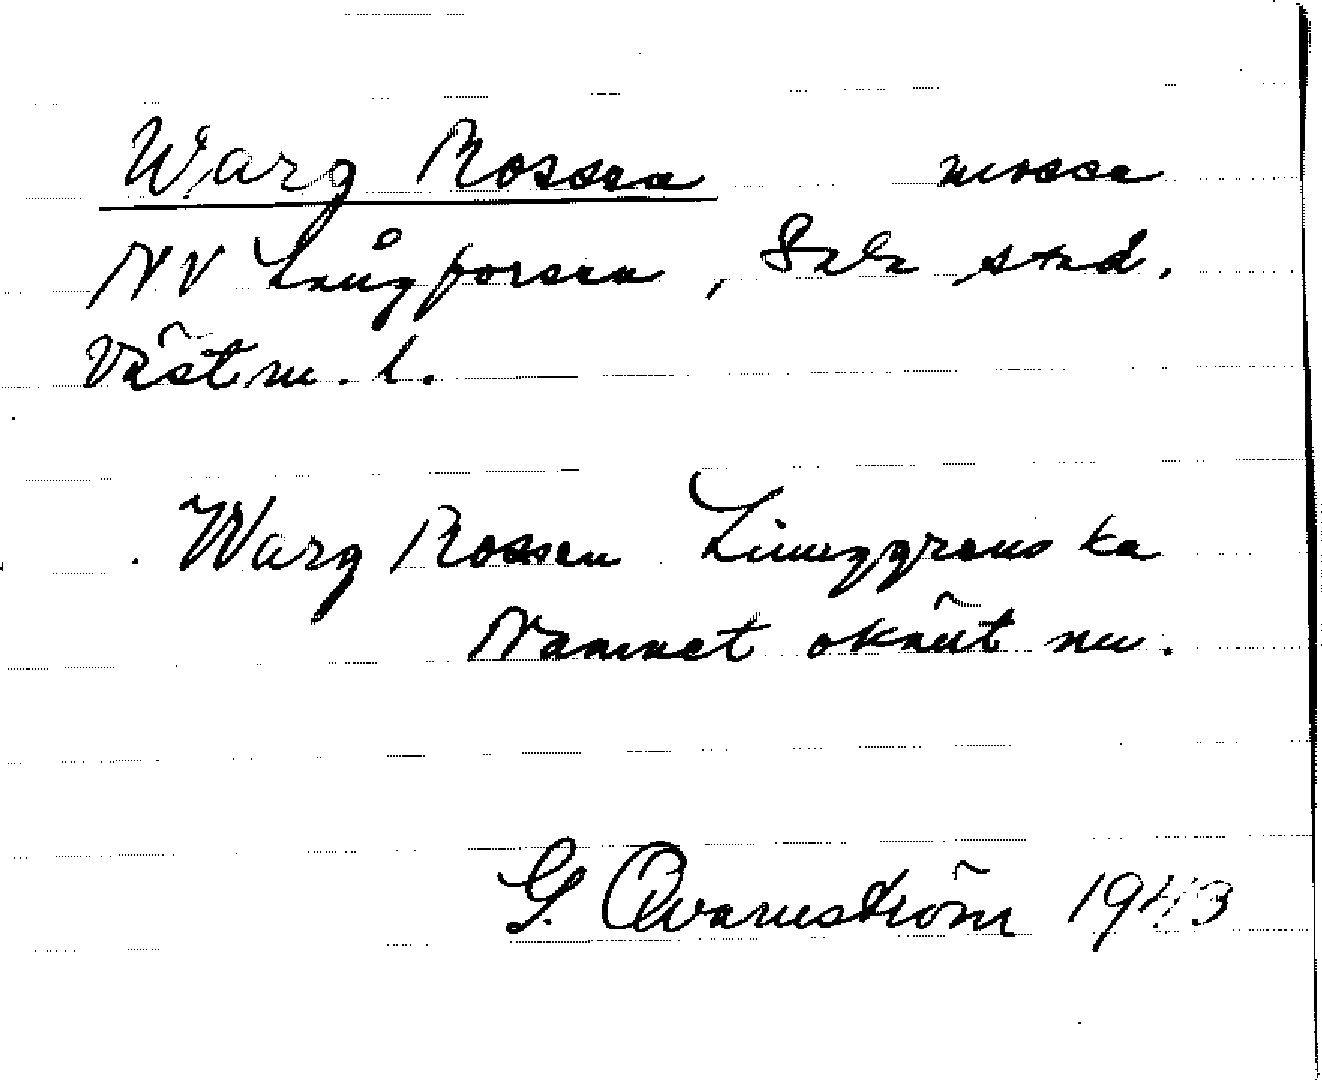 Warg Rossen mosse
NV Långforsen, Sala stad.
Västm. l.
Warg Rossen Ljunggrens ka
Namnet okänt nu.
G. Qvarnström 1943